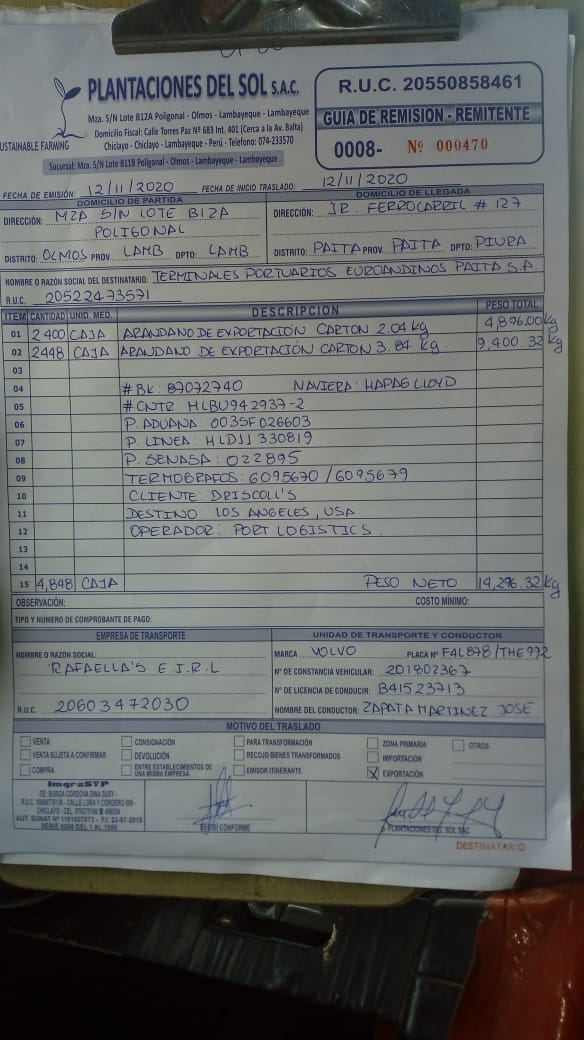 PLANTACIONES DEL SOL S.A.C.
SUSTAINABLE FARMING
Mza. S/N Lote B12A Poligonal - Olmos - Lambayeque - Lambayeque
Domicilio Fiscal: Calle Torres Paz Nº 683 Int. 401 (Cerca a la Av. Balta)
Chiclayo - Chiclayo - Lambayeque - Perú - Telefono: 074-233570
Sucursal: Mza. S/N Lote B11B Poligonal - Olmos - Lambayeque - Lambayeque
R.U.C. 20550858461
GUIA DE REMISION - REMITENTE
0008- Nº 000470
FECHA DE EMISIÓN: 12/11/2020 FECHA DE INICIO TRASLADO: 12/11/2020
DOMICILIO DE PARTIDA DOMICILIO DE LLEGADA
DIRECCIÓN: MZA S/N LOTE B12A DIRECCIÓN: JR. FERROCARRIL # 127
POLIGONAL
DISTRITO: OLMOS PROV. LAMB DPTO: LAMB DISTRITO: PAITA PROV. PAITA DPTO: PIURA
NOMBRE O RAZÓN SOCIAL DEL DESTINATARIO: TERMINALES PORTUARIOS EUROANDINOS PAITA S.A.
R.U.C. 20522473571
ITEM CANTIDAD UNID. MED. DESCRIPCION PESO TOTAL
01 2400 CAJA ARANDANO DE EXPORTACIÓN CARTON 2.04 kg 4,896.00 kg
02 2448 CAJA ARANDANO DE EXPORTACIÓN CARTON 3.84 kg 9,400.32 kg
03
04 # BK: 87072740 NAVIERA: HAPAG LLOYD
05 # CNTR: HLBU942937-2
06 P. ADUANA: 003SF026603
07 P. LINEA: HLD11 330819
08 P. SENASA: 022895
09 TERMOGRAFOS: 6095670 / 6095679
10 CLIENTE: DRISCOLL'S
11 DESTINO: LOS ANGELES, USA
12 OPERADOR: PORT LOGISTICS.
13
14
15 4,848 CAJA PESO NETO 14,296.32 kg
OBSERVACIÓN: COSTO MÍNIMO:
TIPO Y NÚMERO DE COMPROBANTE DE PAGO:
EMPRESA DE TRANSPORTE UNIDAD DE TRANSPORTE Y CONDUCTOR
NOMBRE O RAZÓN SOCIAL: MARCA VOLVO PLACA Nº F4L878/THE992
RAFAELLA'S E.I.R.L Nº DE CONSTANCIA VEHICULAR: 201802367
Nº DE LICENCIA DE CONDUCIR: B41523713
R.U.C. 20603472030 NOMBRE DEL CONDUCTOR: ZAPATA MARTINEZ JOSÉ
MOTIVO DEL TRASLADO
VENTA CONSIGNACIÓN PARA TRANSFORMACIÓN ZONA PRIMARIA OTROS
VENTA SUJETA A CONFIRMAR DEVOLUCIÓN RECOJO BIENES TRANSFORMADOS IMPORTACIÓN
COMPRA ENTRE ESTABLECIMIENTOS DE UNA MISMA EMPRESA EMISOR ITINERANTE X EXPORTACIÓN
ImgraSYP
DE: BURGA CORDOVA DINA SUSY -
CALLE LORA Y CORDERO
SERIE 0008 DEL 1 AL 1000
RECIBI CONFORME
p. PLANTACIONES DEL SOL SAC
DESTINATARIO